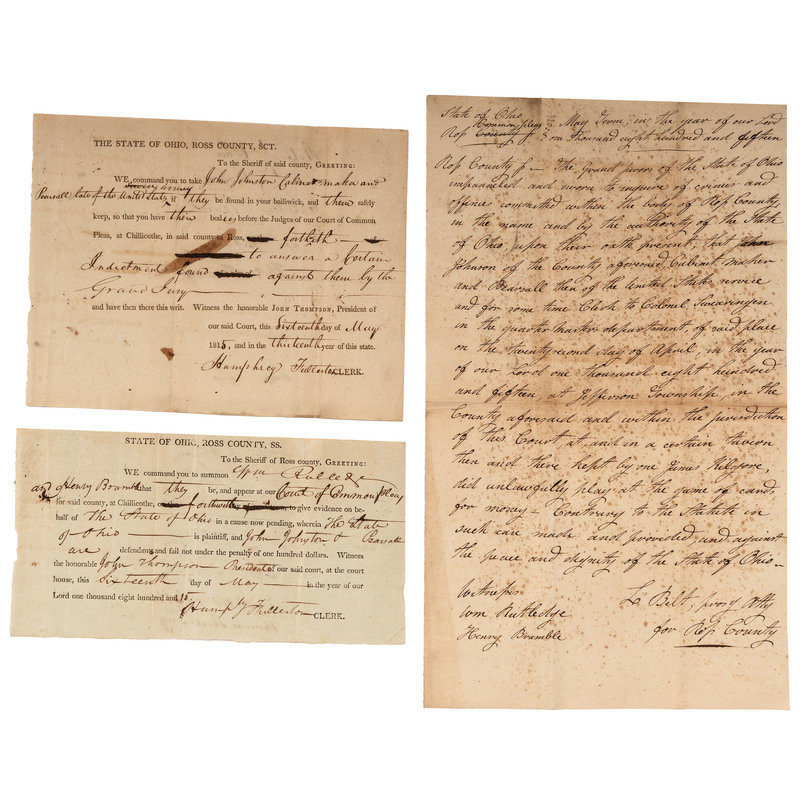 THE STATE OF OHIO, ROSS COUNTY, SCT.
To the Sheriff of said county, GREETING:
WE command you to take John Johnston Cabinet maker and
Pearsall late of the United States army if they be found in your bailiwick, and them safely
keep, so that you have their bodies before the Judges of our Court of Common
Pleas, at Chillicothe, in said county of Ross, forthwith
to answer a Certain
Indictment found against them by the
Grand Jury
and have then there this writ. Witness the honorable JOHN THOMPSON, President of
our said Court, this Sixteenth day of May
1815, and in the thirteenth year of this state.
Humphrey Fullerton CLERK.
STATE OF OHIO, ROSS COUNTY, SS.
To the Sheriff of Ross county, GREETING:
WE command you to summon Wm
and Henry Bramble that they be, and appear at our Court of Common pleas
for said county, at Chillicothe, forthwith to give evidence on be-
half of The State of Ohio in a cause now pending, wherein The State
of Ohio is plaintiff, and John Johnston & Pearsall
are defendants and fail not under the penalty of one hundred dollars. Witness
the honorable John Thompson President of our said court, at the court
house, this Sixteenth day of May in the year of our
Lord one thousand eight hundred and 15.
Hump y Fullerton CLERK.
State of Ohio
Ross County Common pleas May Term, in the year of our Lord
one thousand eight hundred and fifteen
Ross County ss The Grand jurors of the State of Ohio
impannelled and sworn to inquire of crimes and
offences committed within the body of Ross County,
in the name and by the authority of the State
of Ohio, upon their oath present, that John
Johnson of the County aforesaid Cabinet maker
and Pearsall then of the United States service
and for some time Clerk to Colonel Swearingen
in the quarter masters department, of said place
on the twenty second day of April, in the year
of our Lord one thousand eight hundred
and fifteen, at Jefferson Township, in the
County aforesaid and within the jurisdiction
of this Court at and in a certain tavern
then and there kept by one James Kilgore,
did unlawfully play at the game of cards
for money — Contrary to the Statute in
such case made and provided, and against
the peace and dignity of the State of Ohio —
Witnesses
Wm Rutledge
Henry Bramble
Belt, pros Atty
for Ross County